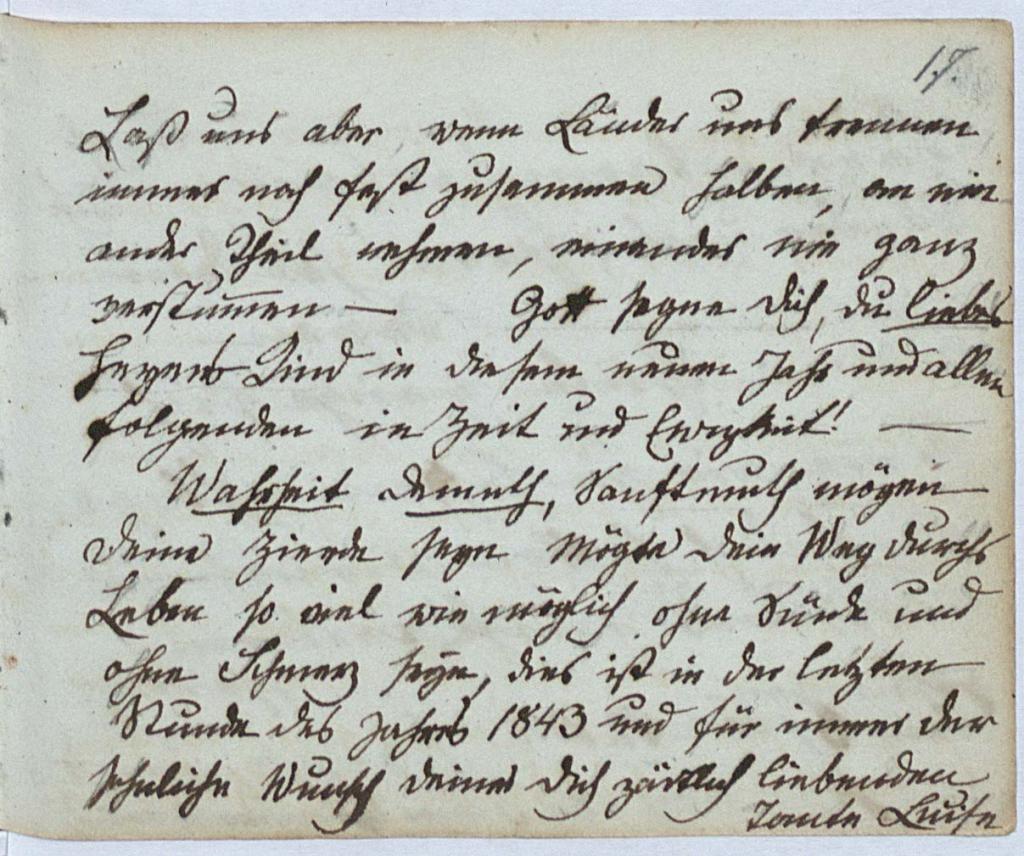 17.
Laß uns aber wenn Länder uns trennen
immer noch fest zusammen halten, an ein
ander Theil nehmen, einander nie ganz
verstummen — Gott segne dich, du liebes
Herzens Kind in diesem neuen Jahr und allen
folgenden in Zeit und Ewigkeit! —
Wahrheit Demuth, Sanftmuth mögen
deine Zierde seyn Mögte dein Weg durchs
Leben so viel wie möglich ohne Sünde und
ohne Schmerz seyn, dies ist in der letzten
Stunde des Jahres 1843 und für immer der
sehnliche Wunsch deiner dich zärtlich liebenden
Tante Luise